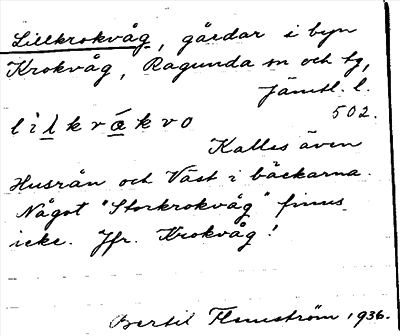 Lillkrokvåg, gårdar i byn
Krokvåg, Ragunda sn och tg,
Jämtl. l.
502.
lilkråkvo
Kallas även
Husrån och Väst i bäckarna.
Något "Storkrokvåg" finns
icke. Jfr. Krokvåg!
Bertil Flemström 1936.